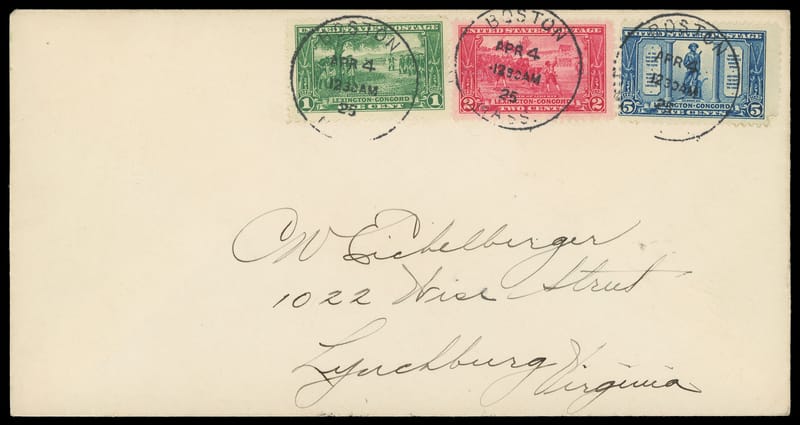 UNITED STATES POSTAGE
LEXINGTON-CONCORD
1 ONE CENT 1
UNITED STATES POSTAGE
LEXINGTON-CONCORD
2 TWO CENTS 2
UNITED STATES POSTAGE
LEXINGTON-CONCORD
5 FIVE CENTS 5
BOSTON
APR 4
12 30 AM
25
BOSTON
APR 4
12 30 AM
25
MASS.
BOSTON
APR 4
12 30 AM
25
CW Eichelberger
1022 Wise Street
Lynchburg
Virginia